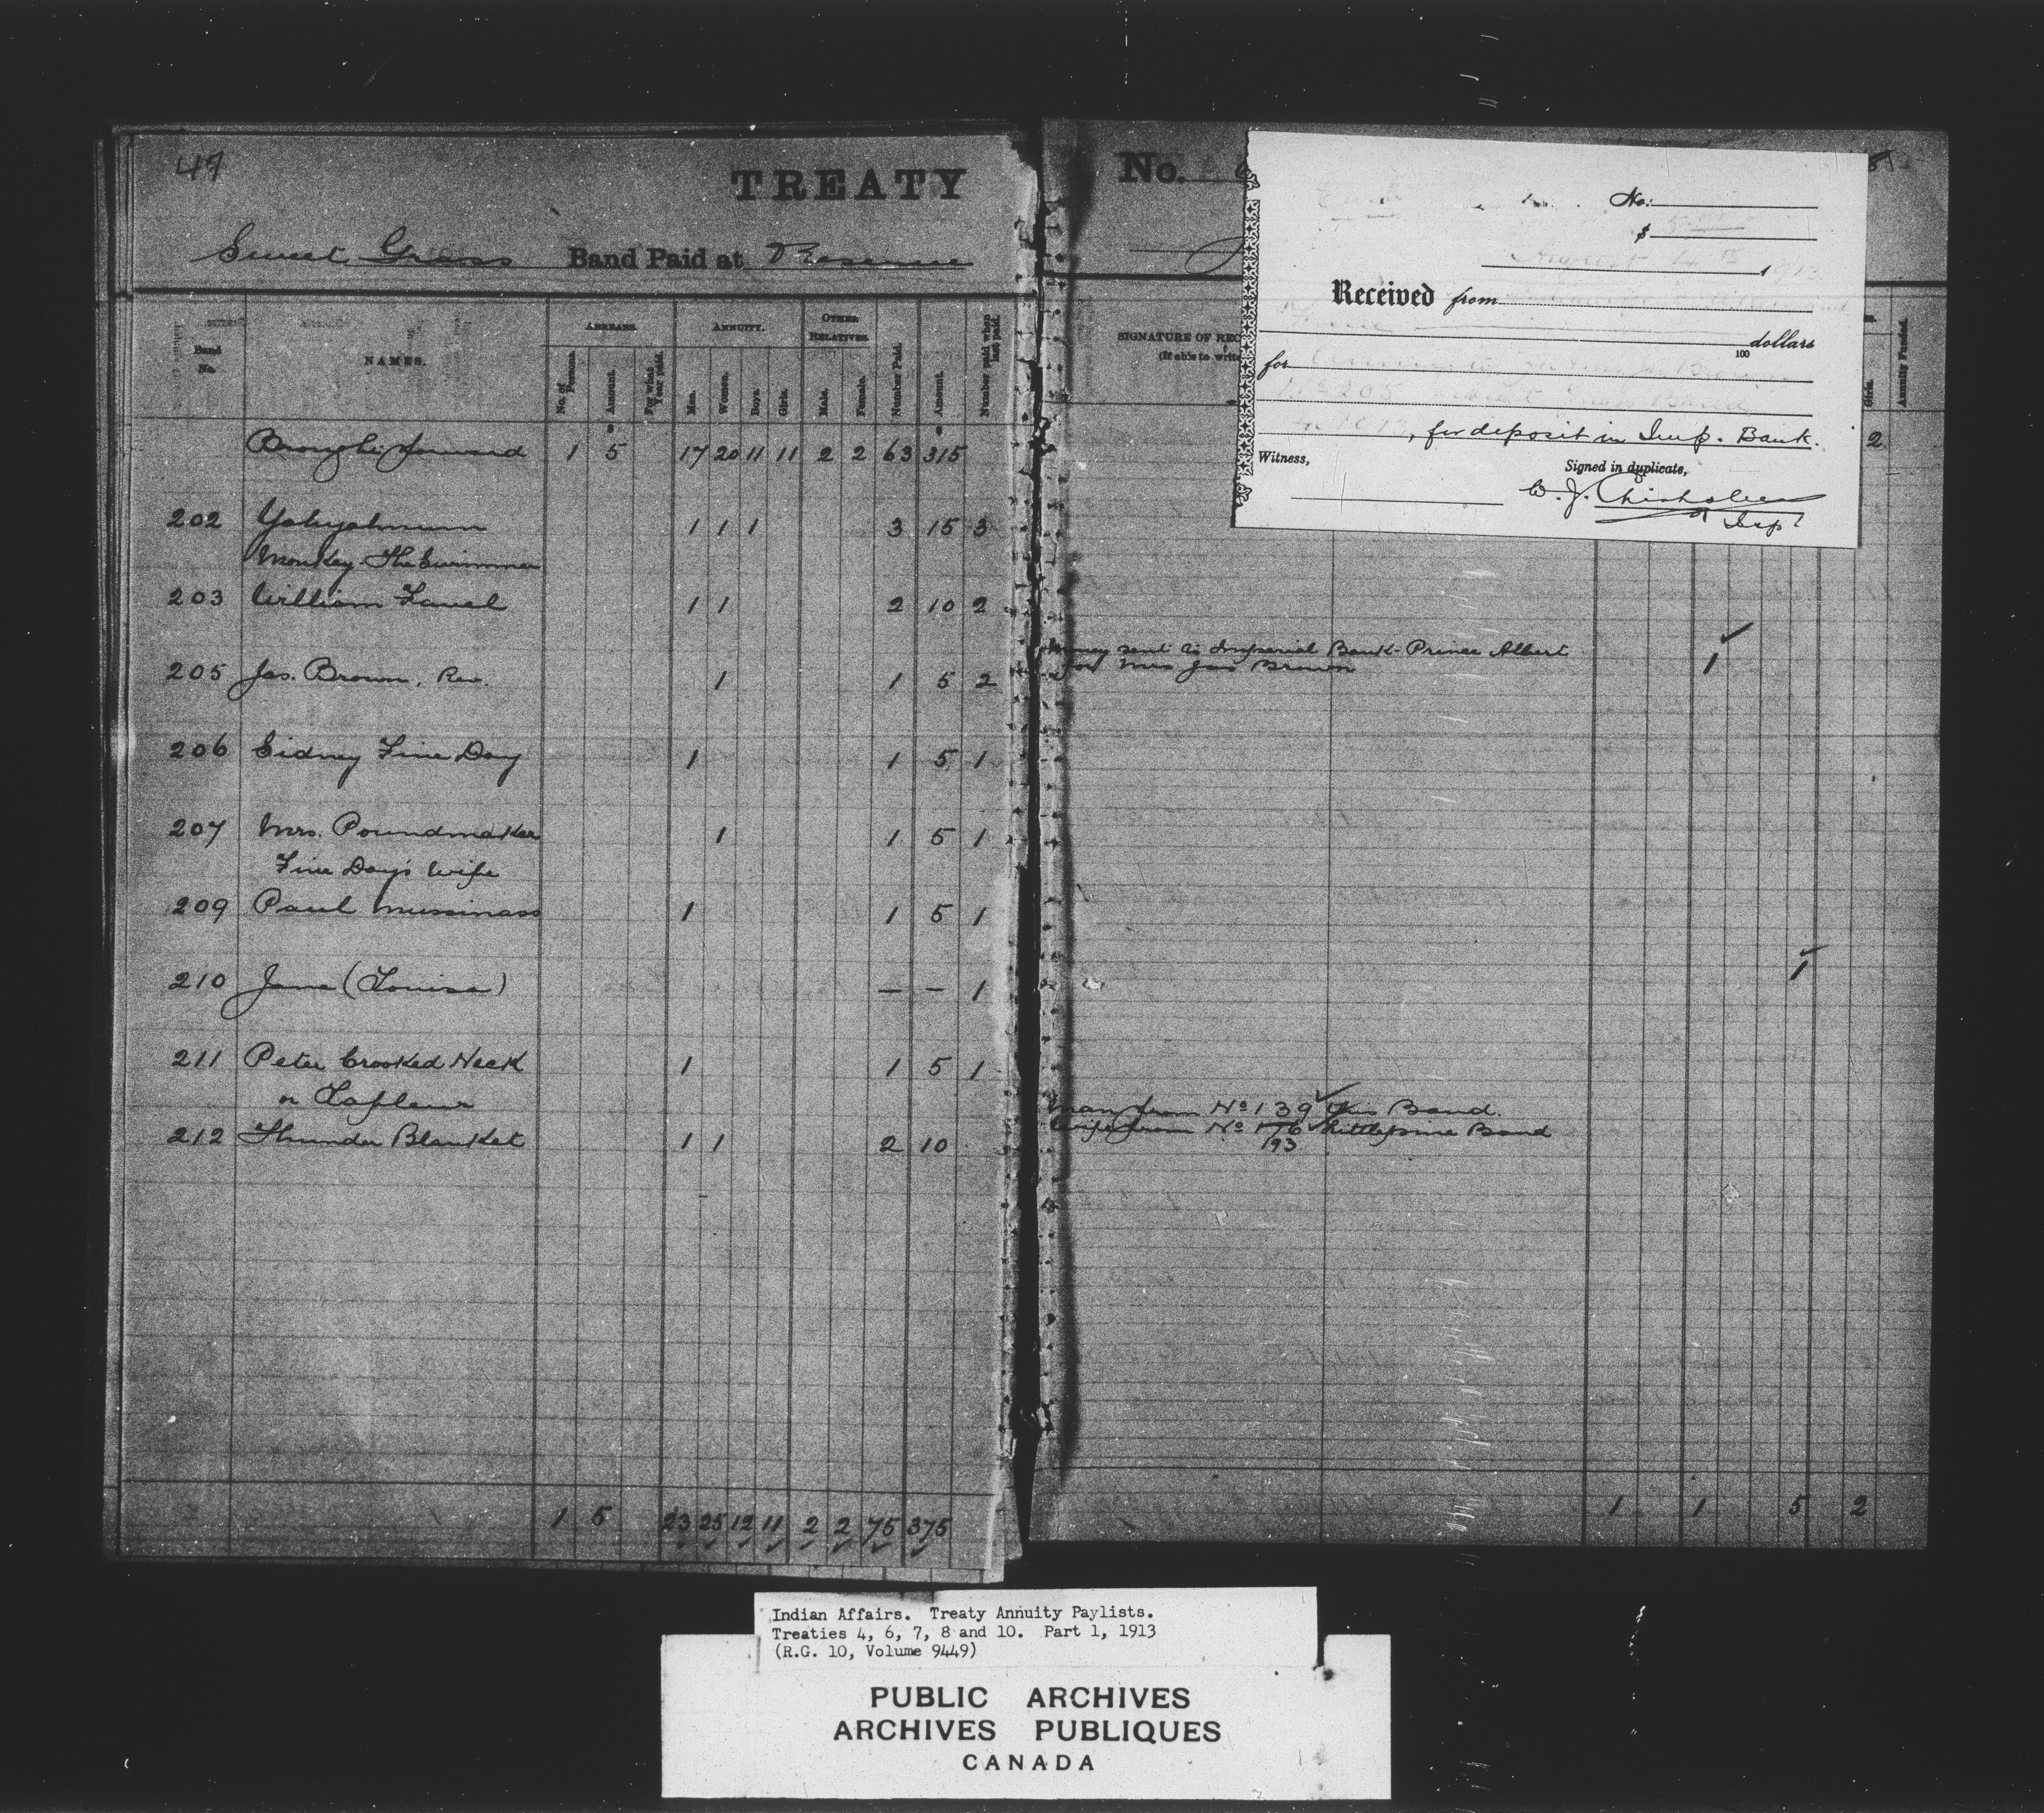 47
TREATY
Sweet Grass Band Paid at Reserve
Band No.
NAMES.
ARREARS.
No. of Persons.
Amount.
For what Year paid.
ANNUITY.
Men.
Women.
Boys.
Girls.
OTHER RELATIVES.
Male.
Female.
Number Paid.
Amount.
Number paid when last paid.
Brought forward 1 5 17 20 11 11 2 2 63 315
202 1 1 1 3 15 3
Monkey The Swimmer
203 William Favel 1 1 2 10 2
205 Jas. Brown, Rev. 1 1 5 2
206 Sidney Fine Day 1 1 5 1
207 Mrs. Poundmaker 1 1 5 1
Fine Day's Wife
209 Paul 1 1 5 1
210 Jane (Louisa) — — 1
211 Peter Crooked Neck 1 1 5 1
or Lafleur
212 Thunder Blanket 1 1 2 10
1 5 23 25 12 11 2 2 75 375
No.
SIGNATURE OF REC
(If able to write
Girls.
Annuity Funded.
2
No.
$
August
Received from
100 dollars
for
No 205 Sweet Grass Band
, for deposit in Imp. Bank.
Witness,
Signed in duplicate,
W. J. Chisholm
Insp
Money sent to Imperial Bank - Prince Albert 1
for Mrs Jas Brown
1
Man from No 139 this Band.
Wife from No 176 Little pine Band
193
1 1 5 2
Indian Affairs. Treaty Annuity Paylists.
Treaties 4, 6, 7, 8 and 10. Part 1, 1913
(R.G. 10, Volume 9449)
PUBLIC ARCHIVES
ARCHIVES PUBLIQUES
CANADA